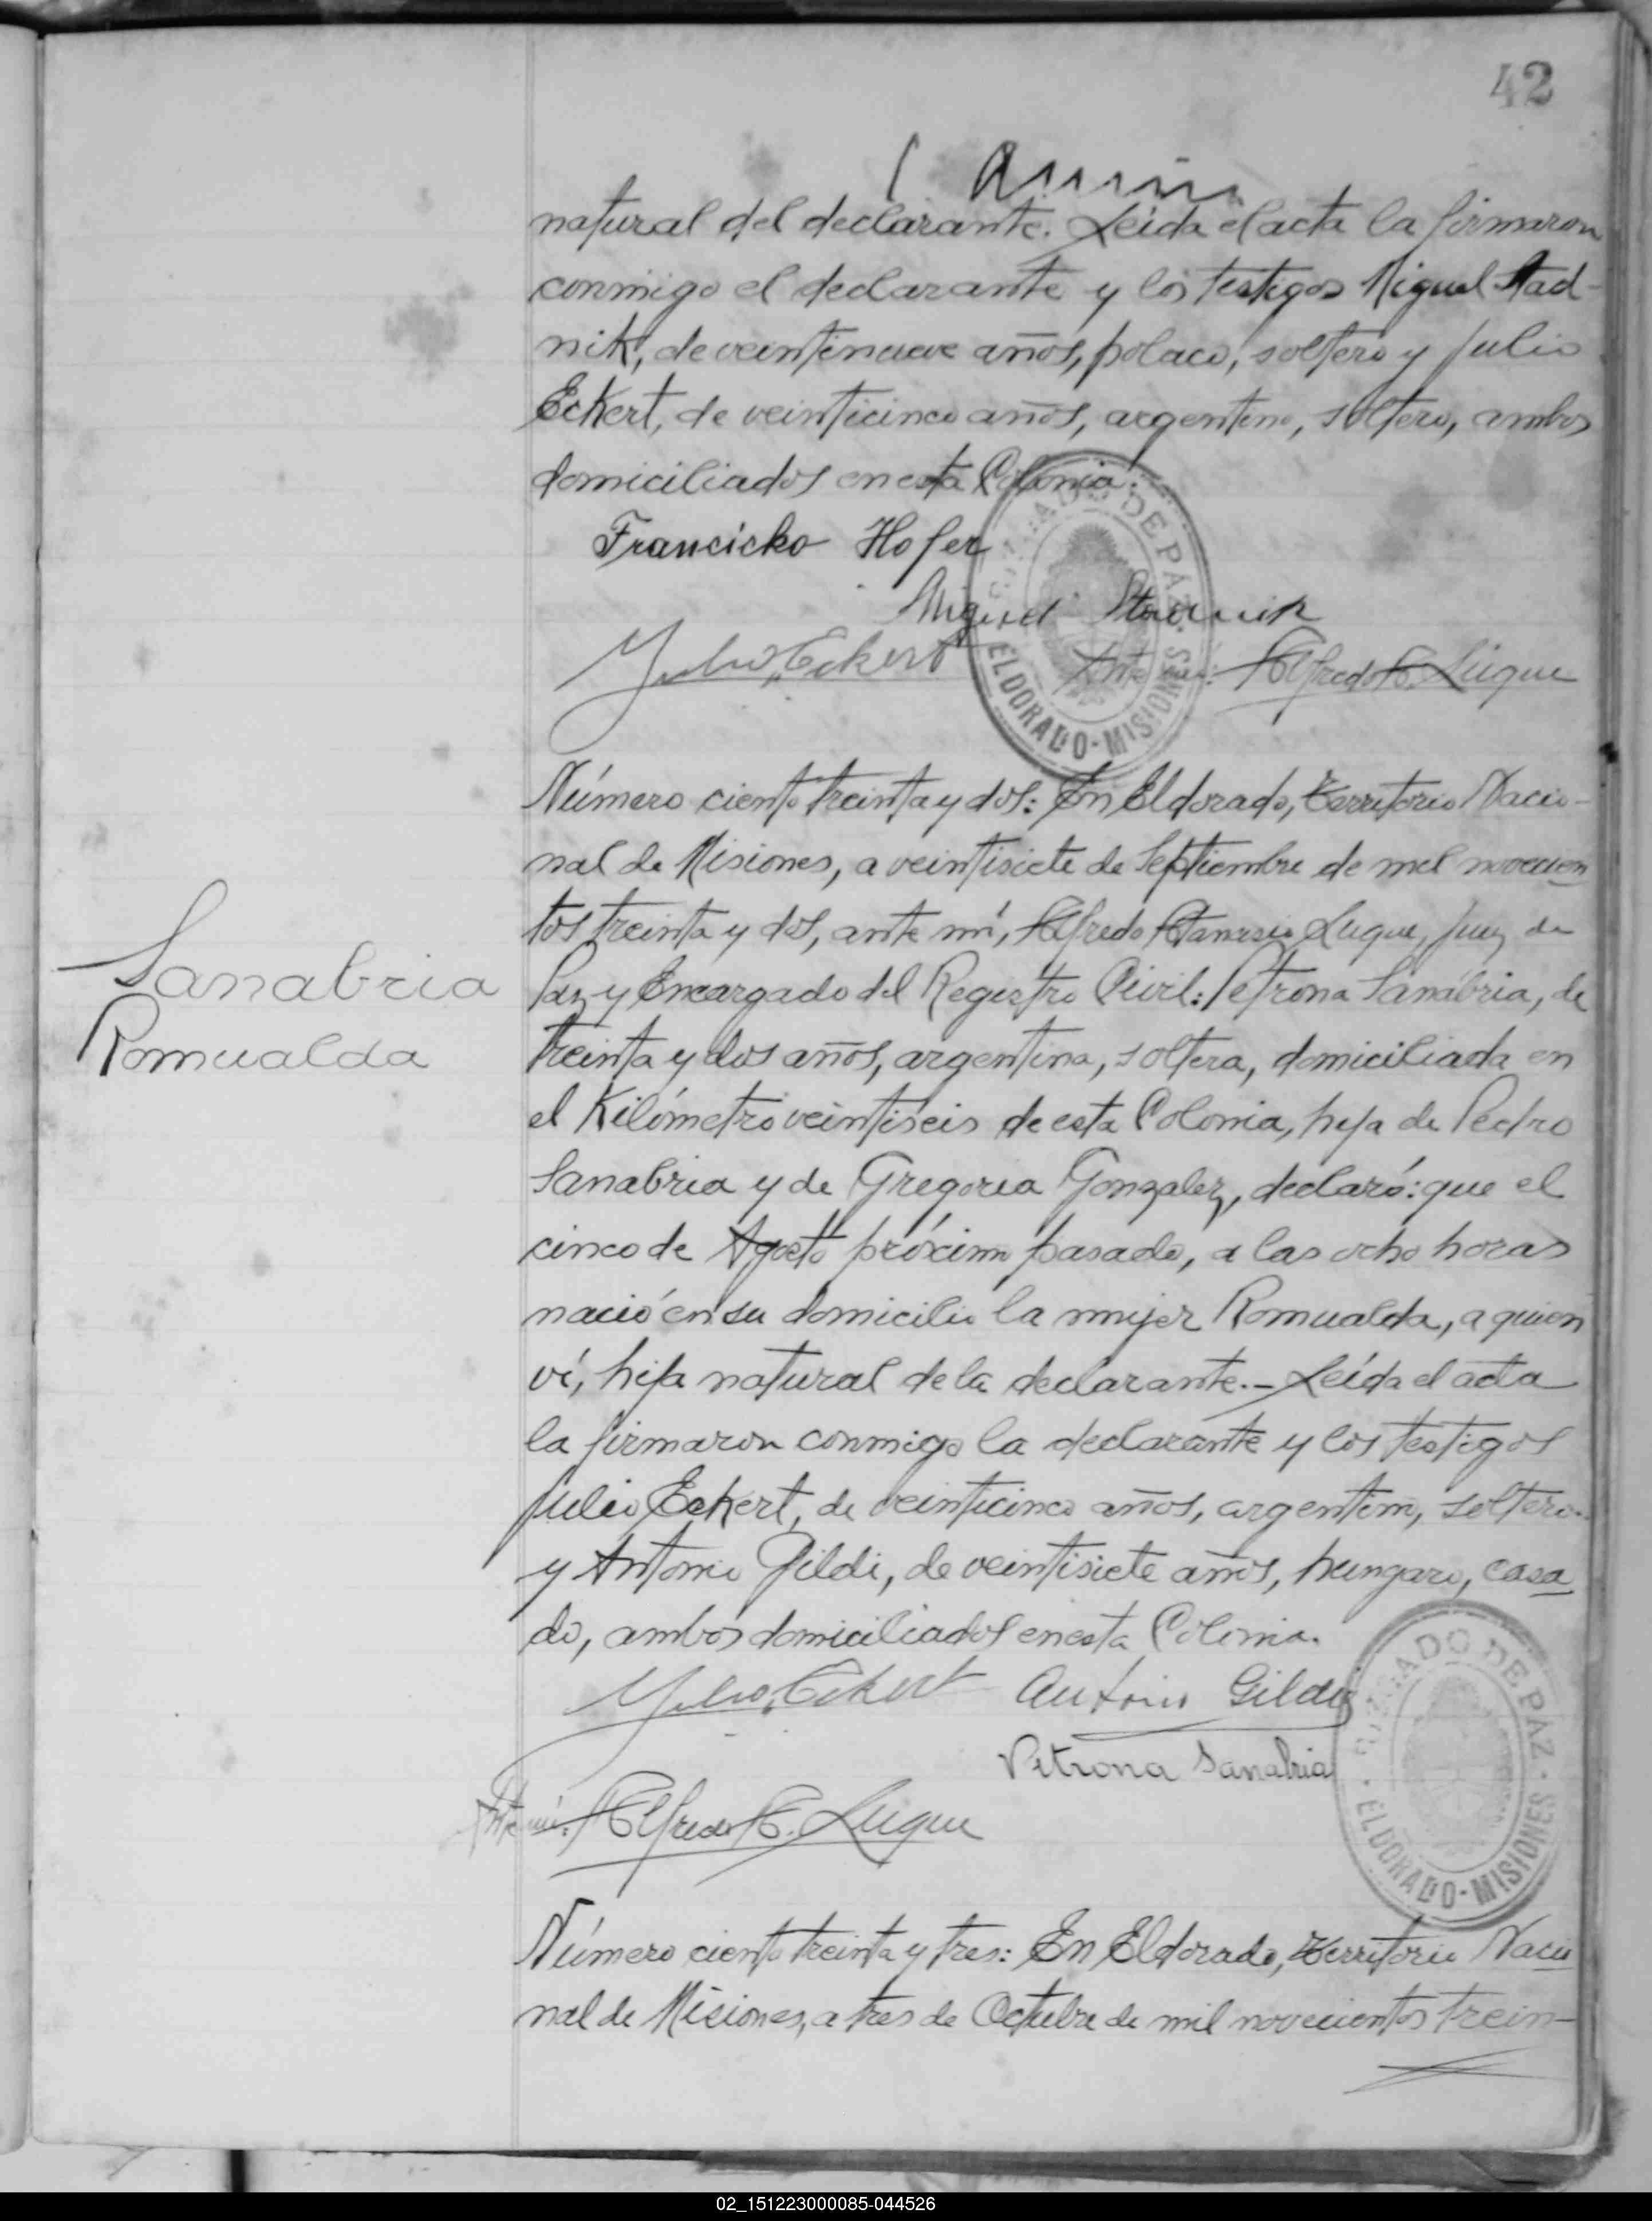 42
natural del declarante. Leída el acta la firmaron
conmigo el declarante y los testigos Miguel Stad-
nik, de veintinueve años, polaco, soltero y Julio
Eckert, de veinticinco años, argentino, soltero, ambos
domiciliados en esta Colonia.
Francicko Hofer
Miguel Stadnik
Julio Eckert Ante mi: Alfredo A. Luque
JUZGADO DE PAZ · ELDORADO-MISIONES ·
Número ciento treinta y dos: En Eldorado, Territorio Nacio-
nal de Misiones, a veintisiete de Septiembre de mil novecien
tos treinta y dos, ante mí, Alfredo Luque, Juez de
Paz y Encargado del Registro Civil: Petrona Sanabria, de
Sanabria
Romualda
treinta y dos años, argentina, soltera, domiciliada en
el Kilómetro veintiseis de esta Colonia, hija de Pedro
Sanabria y de Gregoria Gonzalez, declaró: que el
cinco de Agosto próximo pasado, a las ocho horas
nació en su domicilio la mujer Romualda, a quien
ví, hija natural de la declarante.- Leída el acta
la firmaron conmigo la declarante y los testigos
Julio Eckert, de veinticinco años, argentino, soltero
y Antonio Gildi, de veintisiete años, hungaro, casa
do, ambos domiciliados en esta Colonia.
Julio Eckert Antonio Gildi
Petrona Sanabria
Ante mí: Alfredo A. Luque
JUZGADO DE PAZ · ELDORADO-MISIONES ·
Número ciento treinta y tres: En Eldorado, Territorio Nacio
nal de Misiones, a tres de Octubre de mil novecientos trein-
02_151223000085-044526